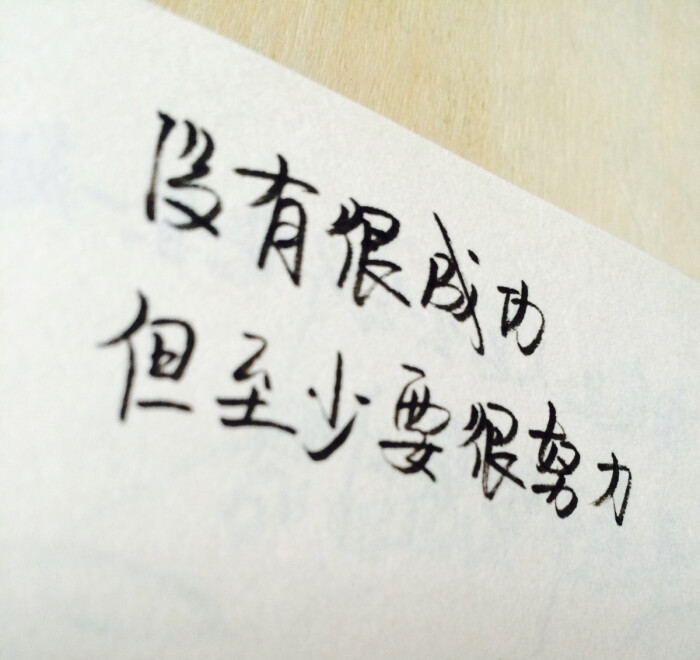 没有很成功
但至少要很努力